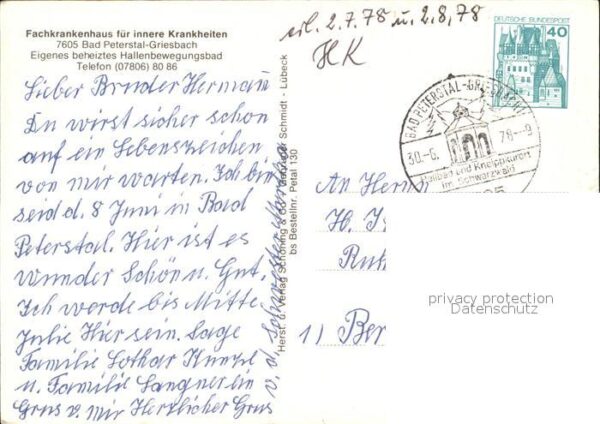 Fachkrankenhaus für innere Krankheiten
7605 Bad Peterstal-Griesbach
Eigenes beheiztes Hallenbewegungsbad
Telefon (07806) 80 86
erl. 2.7.78 u. 2,8,78
HK
DEUTSCHE BUNDESPOST
40
BAD PETERSTAL-GRIESBACH
30.-6. 78.-9
Heilbad und Kneippkurort
im Schwarzwald
Lieber Bruder Hermann
Du wirst sicher schon
auf ein Lebenszeichen
von mir warten. Ich bin
seid d. 8 Juni in Bad
Peterstal. Hier ist es
wunder Schön u. Gut.
Ich werde bis Mitte
Julie Hier sein. Sage
Familie Lothar
u. Familie Langner ein
Grus v. mir Herzlicher Grus
v. d. Schwester
Herst. u. Verlag Schöning & Co + Gebrüder Schmidt - Lübeck
bs Bestellnr. Petal 130
An Herrn
H.
1) Ber
privacy protection
Datenschutz